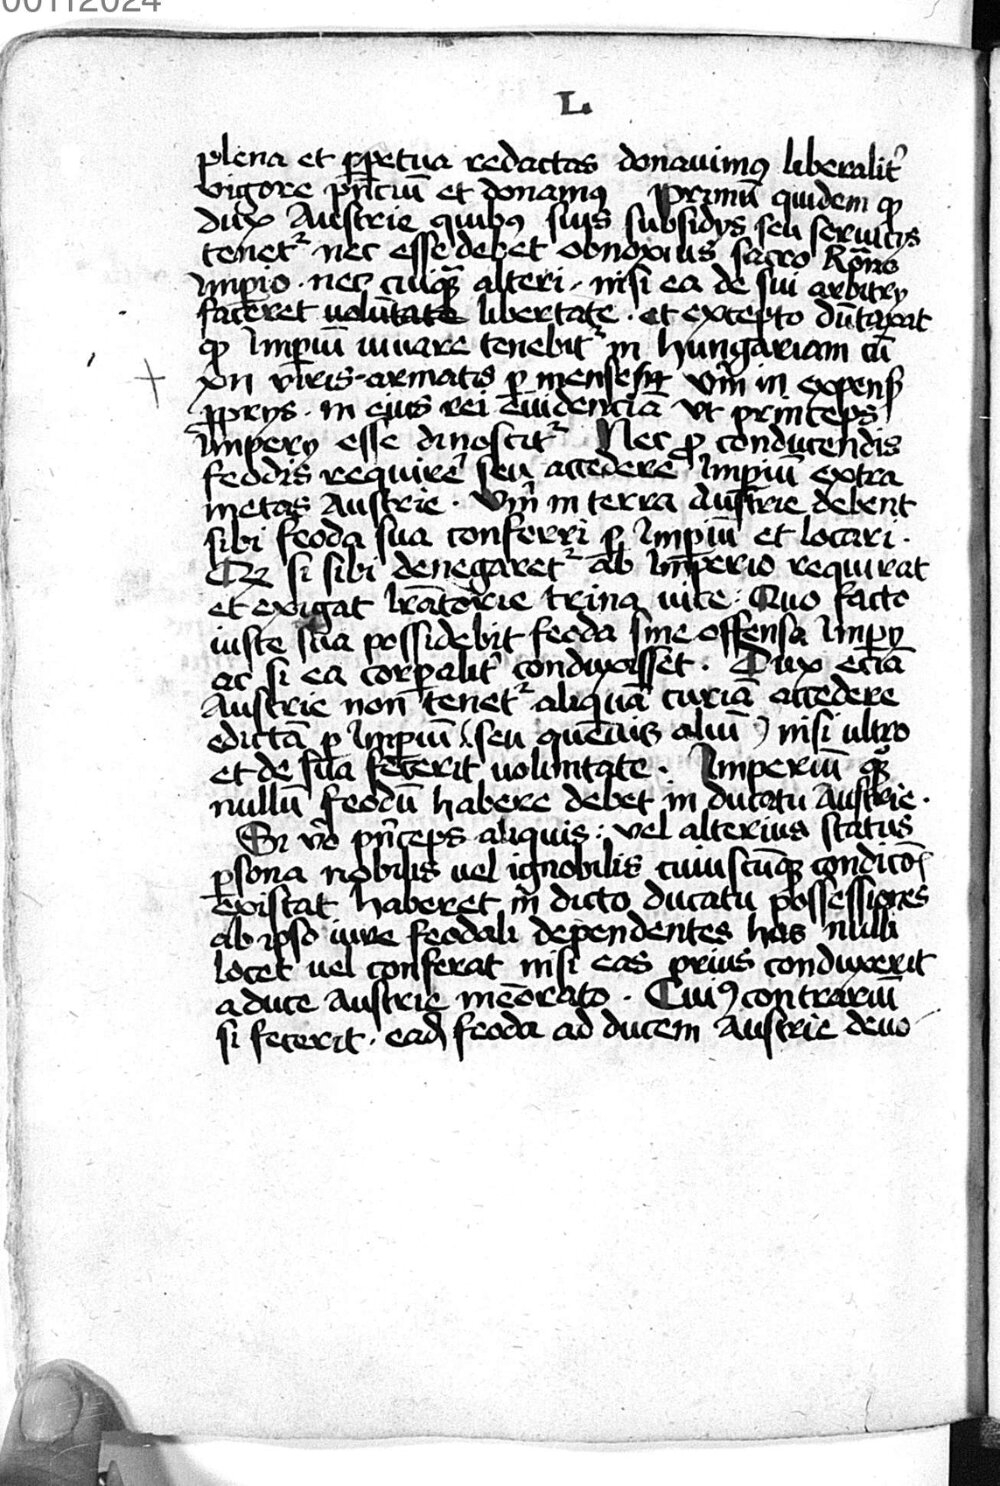 00112024
L.
plena et ꝑpetua redactas donauimꝰ liberalit̉
vigore pn̄ciū et donamꝰ Primū quidem ꝙ
dux Austrie quibꝰ suis subsidys seu seruicys
tenet᷑ nec esse debet obnoxius sacro Ro̅no
Imꝑio . nec cuiqꝫ alteri . nisi ea de sui arbitry
faceret uoluntate libertate . et excepto dūtaxat
ꝙ Imꝑiū iuuare tenebit᷑ in Hungariam cū
xii viris armatis ꝑ mensem vnū in expens
ꝓprys . in ejus rei euidenciā vt princeps
Impery esse dinoscit᷑ Nec ꝓ conducendis
feodis requirere seu accedere Imꝑiū extra
metas Austrie . Vm̄ in terra Austrie debent
sibi feoda sua conferri ꝑ Imꝑiū et locari .
Qꝫ si sibi denegaret᷑ ab Imperio requirat
et exigat lr̄atorie trina uice : Quo facto
iuste sua possidebit feoda sine offensa Imꝑy
ac si ea corꝑalit̉ conduxisset . Dux eciā
Austrie non tenet᷑ aliquā curiā accedere
edictā ꝑ Imꝑiū ( seu quēuis aliū ) nisi ultro
et de sua fecerit uoluntate . Imperiū qꝫ
nullū feodū habere debet in ducatu Austrie .
Si vo̅ pn̄ceps aliquis : vel alterius status
ꝑsona nobilis uel ignobilis cuiuscūqꝫ condicōs
existat haberet in dicto ducatu possessiones
ab ipso iure feodali dependentes has nulli
locet uel conferat nisi eas prius conduxerit
a duce Austrie meorato . Cuiꝰ contrariū
si fecerit . ead feoda ad ducem Austrie deuo